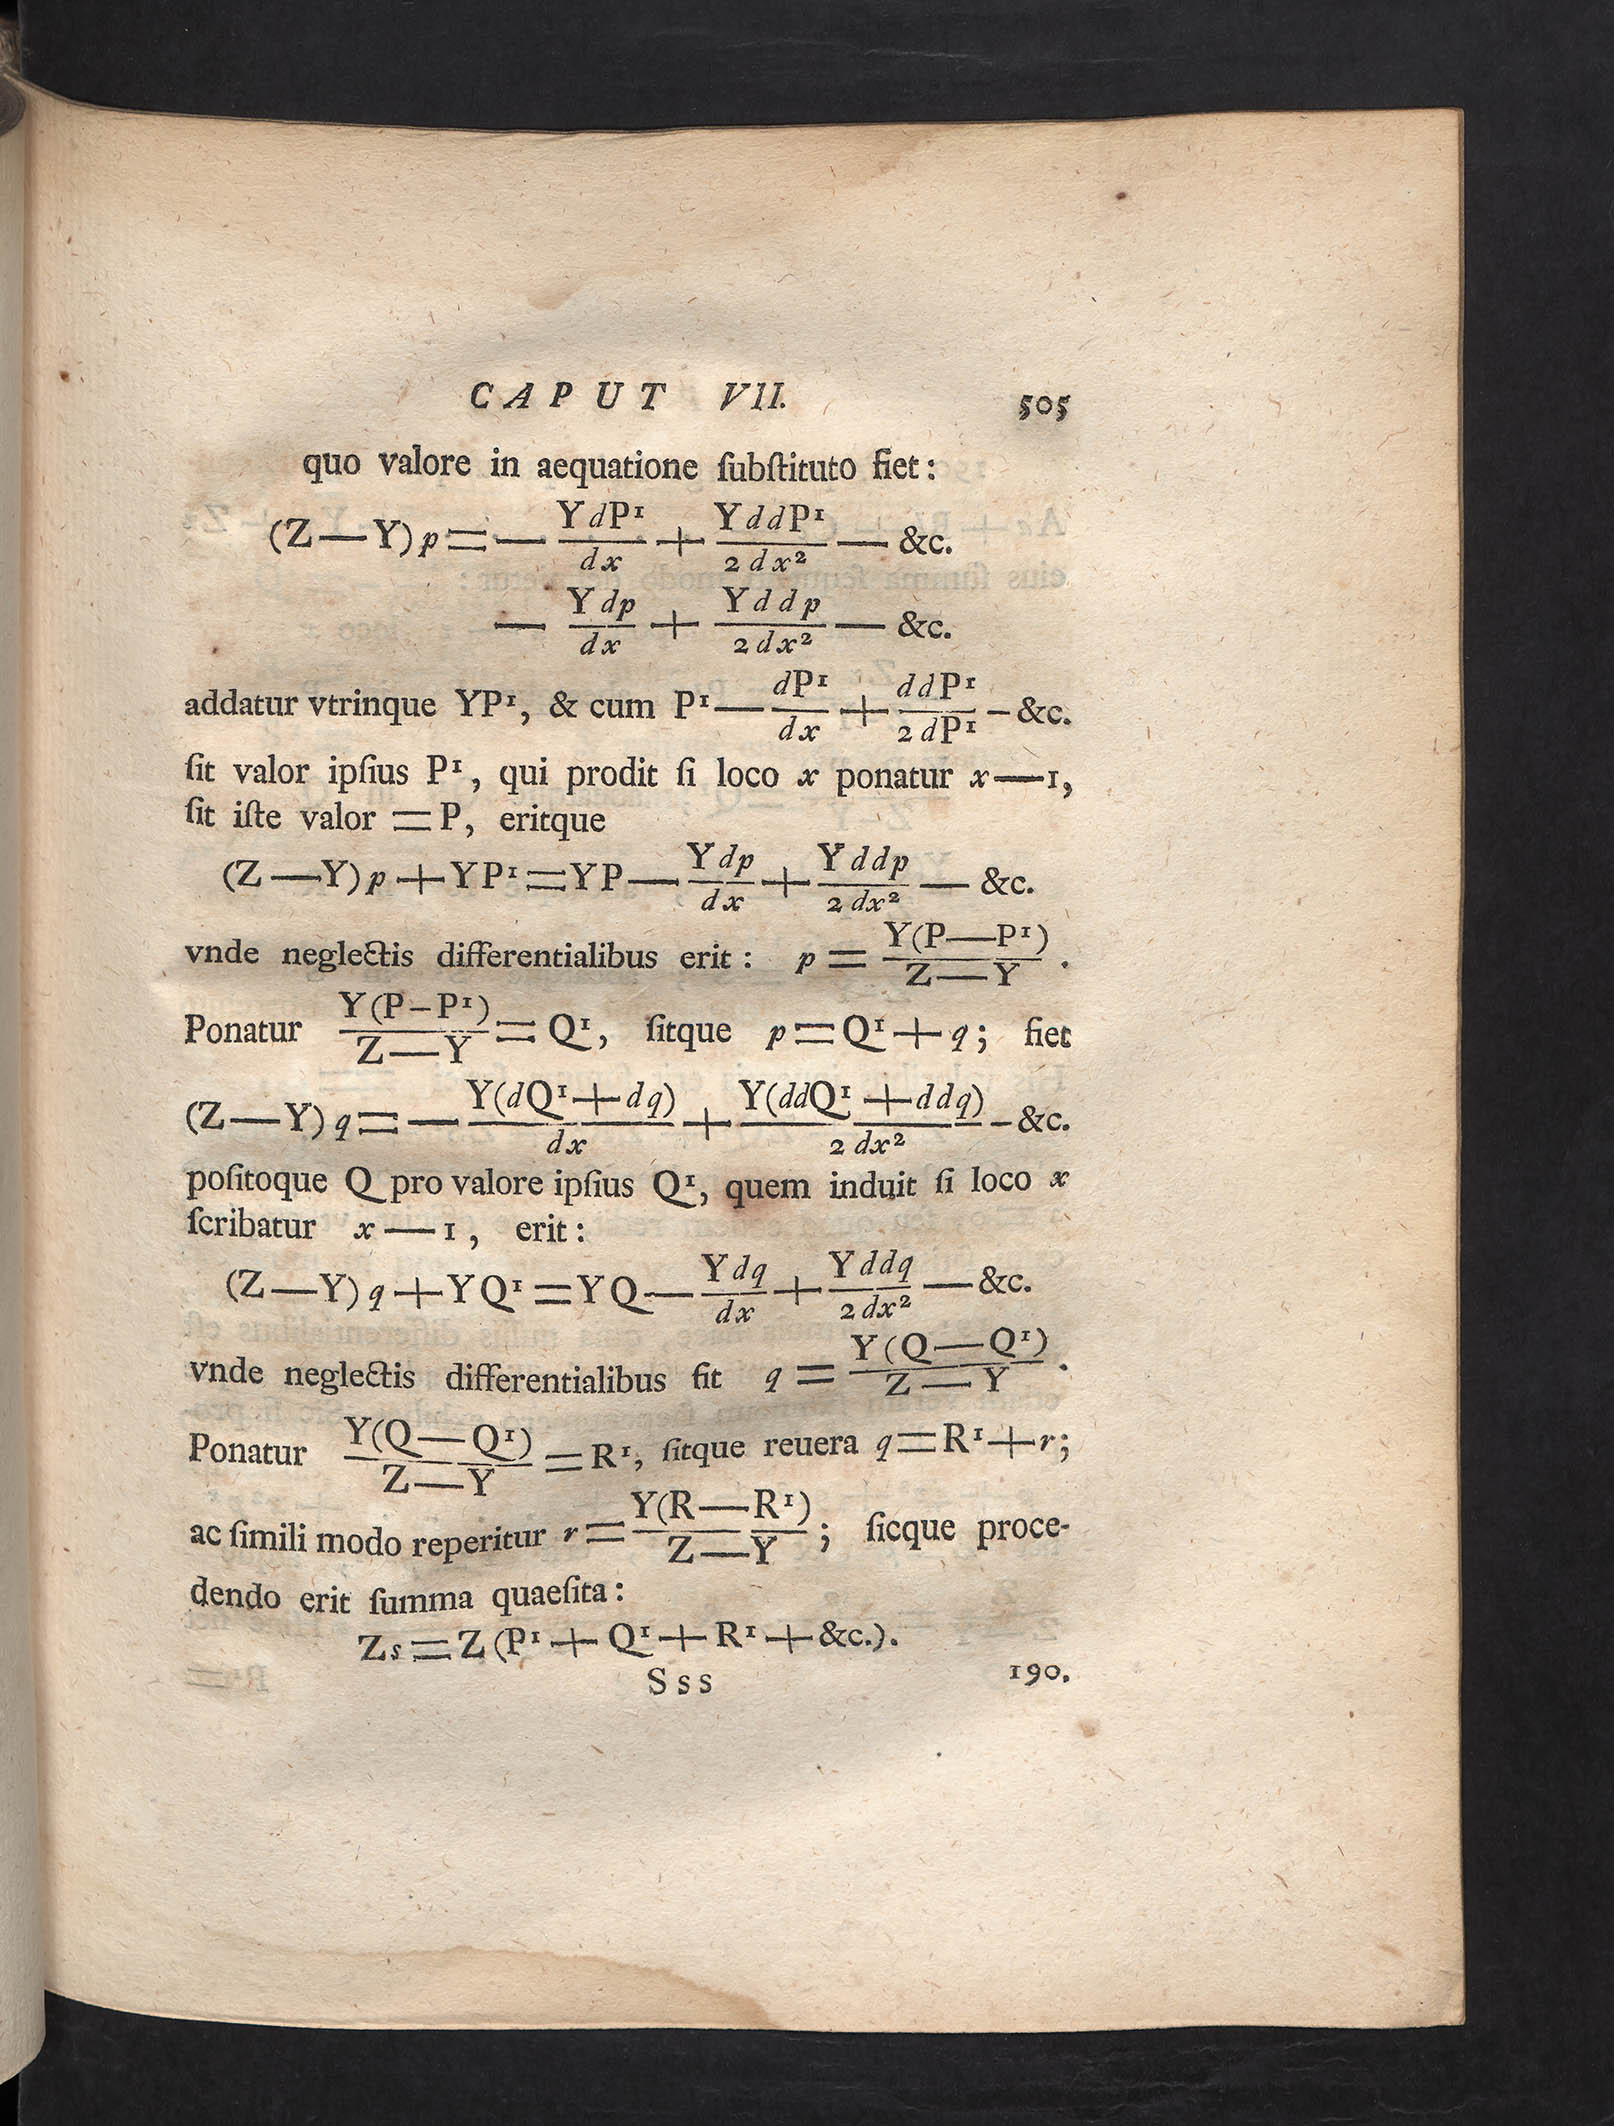 CAPUT VII. 505
quo valore in aequatione ſubſtituto fiet:
(Z—Y)p=— YdP¹/dx + YddP¹/2dx² — &c.
— Ydp/dx + Yddp/2dx² — &c.
addatur vtrinque YP¹, & cum P¹— dP¹/dx + ddP¹/2dP¹ – &c.
ſit valor ipſius P¹, qui prodit ſi loco x ponatur x—1,
ſit iſte valor =P, eritque
(Z—Y)p+YP¹=YP— Ydp/dx + Yddp/2dx² — &c.
vnde neglectis differentialibus erit: p = Y(P—P¹)/Z—Y .
Ponatur Y(P–P¹)/Z—Y = Q¹, ſitque p=Q¹+q; fiet
(Z—Y)q=— Y(dQ¹+dq)/dx + Y(ddQ¹+ddq)/2dx² – &c.
poſitoque Q pro valore ipſius Q¹, quem induit ſi loco x
ſcribatur x—1, erit:
(Z—Y)q+YQ¹=YQ— Ydq/dx + Yddq/2dx² — &c.
vnde neglectis differentialibus fit q = Y(Q—Q¹)/Z—Y .
Ponatur Y(Q—Q¹)/Z—Y =R¹, ſitque reuera q=R¹+r;
ac ſimili modo reperitur r= Y(R—R¹)/Z—Y ; ſicque proce-
dendo erit ſumma quaeſita:
Zs=Z(P¹+Q¹+R¹+&c.).
Sss 190.